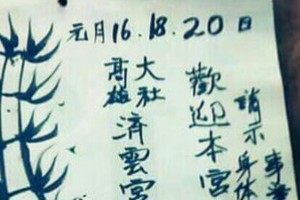 元月16.18.20日
高雄大社
濟雲宮
歡迎本宮
指示身体